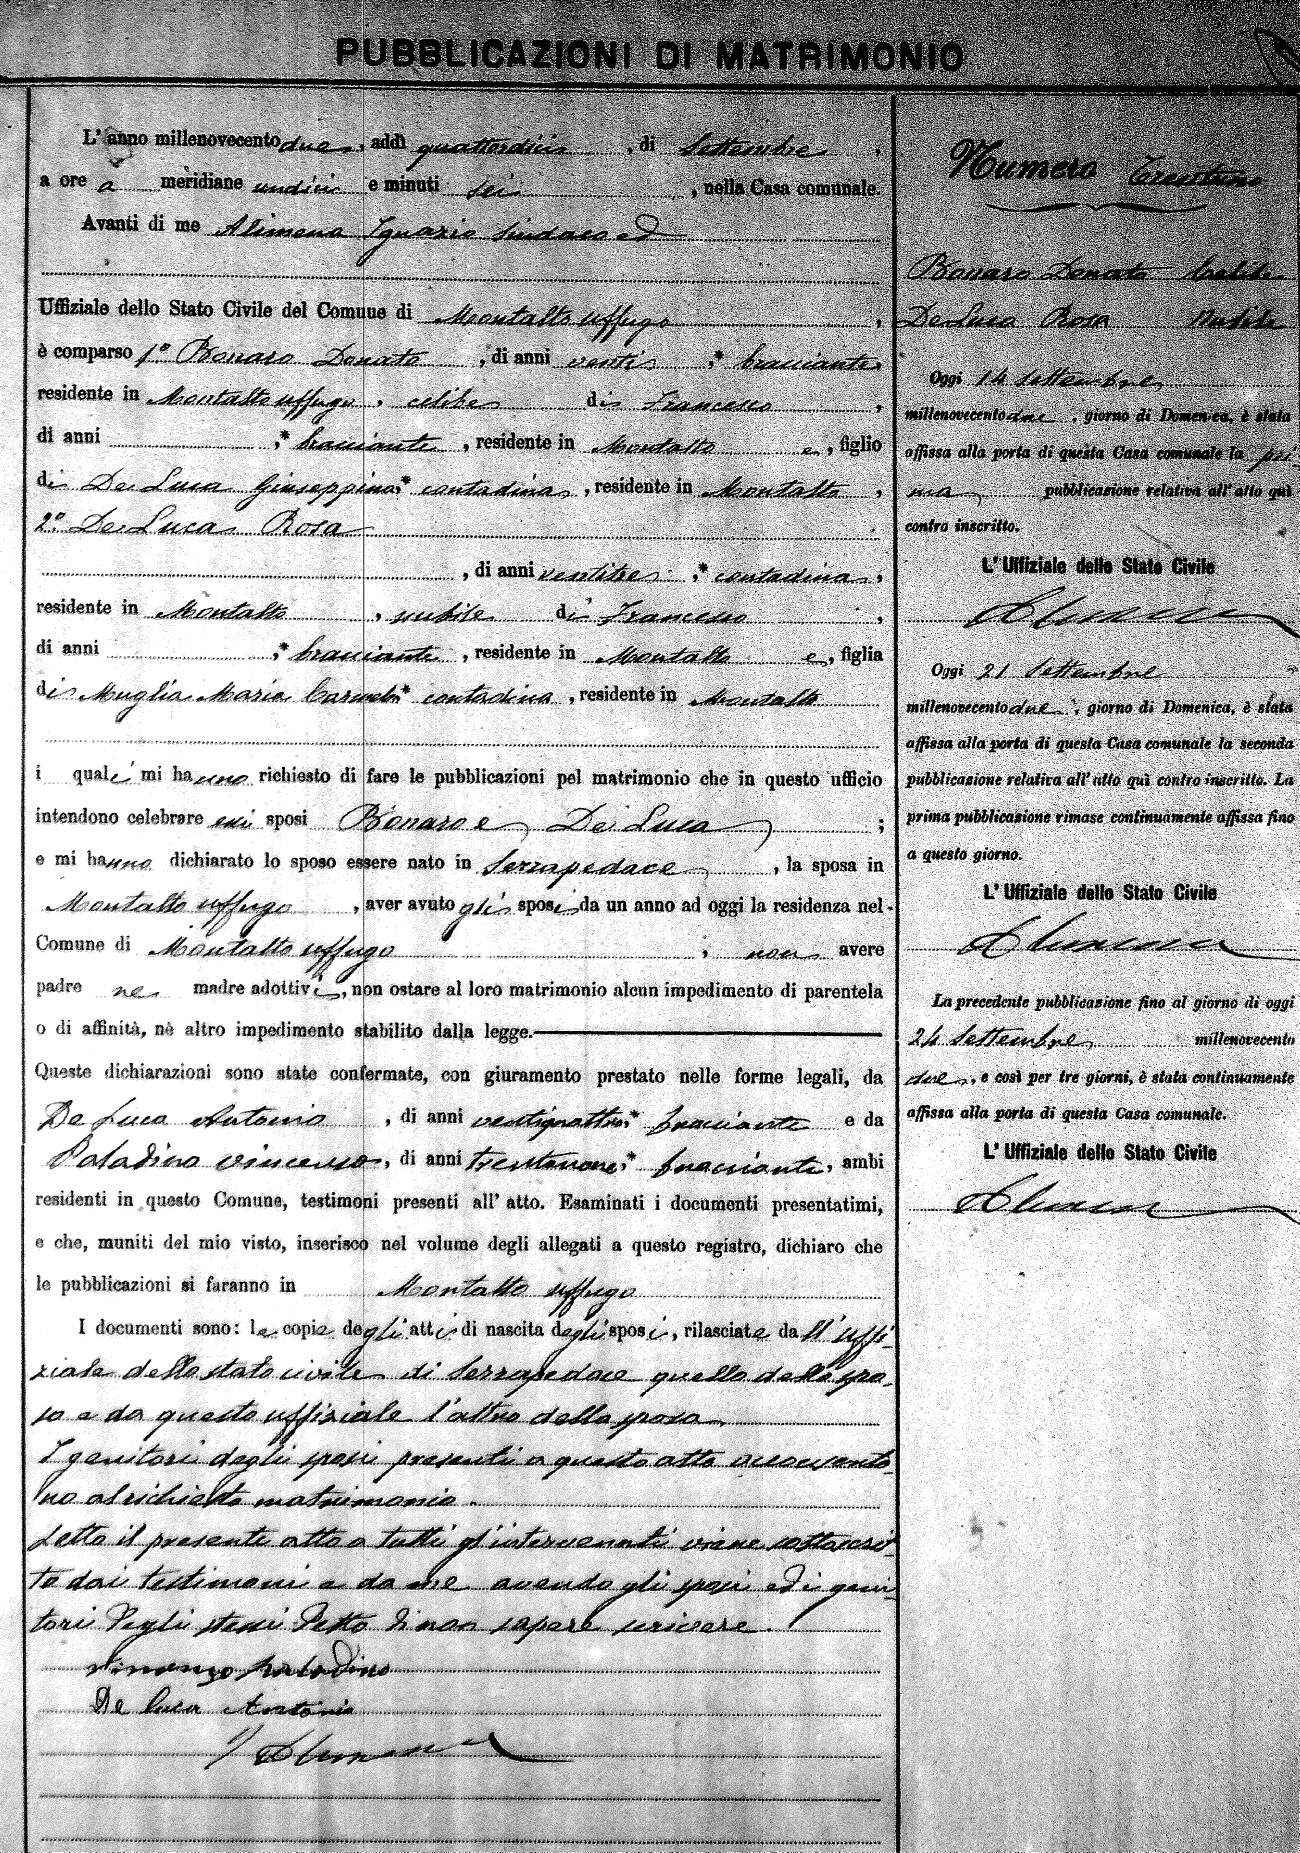 PUBBLICAZIONI DI MATRIMONIO
L' anno millenovecento due, addì quattordici, di Settembre,
a ore a meridiane undici e minuti sei, nella Casa comunale.
Avanti di me Alimena Ignazio Sindaco ed
Uffiziale dello Stato Civile del Comune di Montalto uffugo,
è comparso 1º Bonaro Donato, di anni venti, * bracciante
residente in Montalto uffugo, celibe di Francesco,
di anni , * bracciante, residente in Montalto e, figlio
di De Luca Giuseppina, * contadina, residente in Montalto,
2º De Luca Rosa
, di anni ventitre, * contadina,
residente in Montalto, nubile di Francesco,
di anni , * bracciante, residente in Montalto e, figlia
di Muglia Maria Carmela * contadina, residente in Montalto
i quali mi hanno richiesto di fare le pubblicazioni pel matrimonio che in questo ufficio
intendono celebrare essi sposi Bonaro e De Luca ;
e mi hanno dichiarato lo sposo essere nato in Serrapedace, la sposa in
Montalto uffugo, aver avuto gli sposi da un anno ad oggi la residenza nel
Comune di Montalto uffugo ; non avere
padre ne madre adottivi, non ostare al loro matrimonio alcun impedimento di parentela
o di affinità, nè altro impedimento stabilito dalla legge.
Queste dichiarazioni sono state confermate, con giuramento prestato nelle forme legali, da
De Luca Antonio, di anni ventiquattro, * bracciante e da
Paladino Vincenzo, di anni trentanove, * bracciante, ambi
residenti in questo Comune, testimoni presenti all' atto. Esaminati i documenti presentatimi,
e che, muniti del mio visto, inserisco nel volume degli allegati a questo registro, dichiaro che
le pubblicazioni si faranno in Montalto uffugo
I documenti sono: le copie degli atti di nascita degli sposi, rilasciate dall'uffi-
ziale dello stato civile di Serrapedace quello dello spo-
so e da questo uffiziale l'altro della sposa
I genitori degli sposi presenti a questo atto acconsento-
no al richiesto matrimonio.
Letto il presente atto a tutti gl'intervenuti viene sottoscrit-
to dai testimoni e da me avendo gli sposi ed i geni-
tori degli stessi detto di non sapere scrivere.
Vincenzo Paladino
De Luca Antonio
Alimena
Numero
Bonaro Donato Celibe
De Luca Rosa Nubile
Oggi 14 Settembre
millenovecento due, giorno di Domenica, è stata
affissa alla porta di questa Casa comunale la pri-
ma pubblicazione relativa all'atto quì
contro inscritto.
L' Uffiziale dello Stato Civile
Alimena
Oggi 21 Settembre
millenovecento due, giorno di Domenica, è stata
affissa alla porta di questa Casa comunale la seconda
pubblicazione relativa all'atto quì contro inscritto. La
prima pubblicazione rimase continuamente affissa fino
a questo giorno.
L' Uffiziale dello Stato Civile
Alimena
La precedente pubblicazione fino al giorno di oggi
24 Settembre millenovecento
due, e così per tre giorni, è stata continuamente
affissa alla porta di questa Casa comunale.
L' Uffiziale dello Stato Civile
Alimena